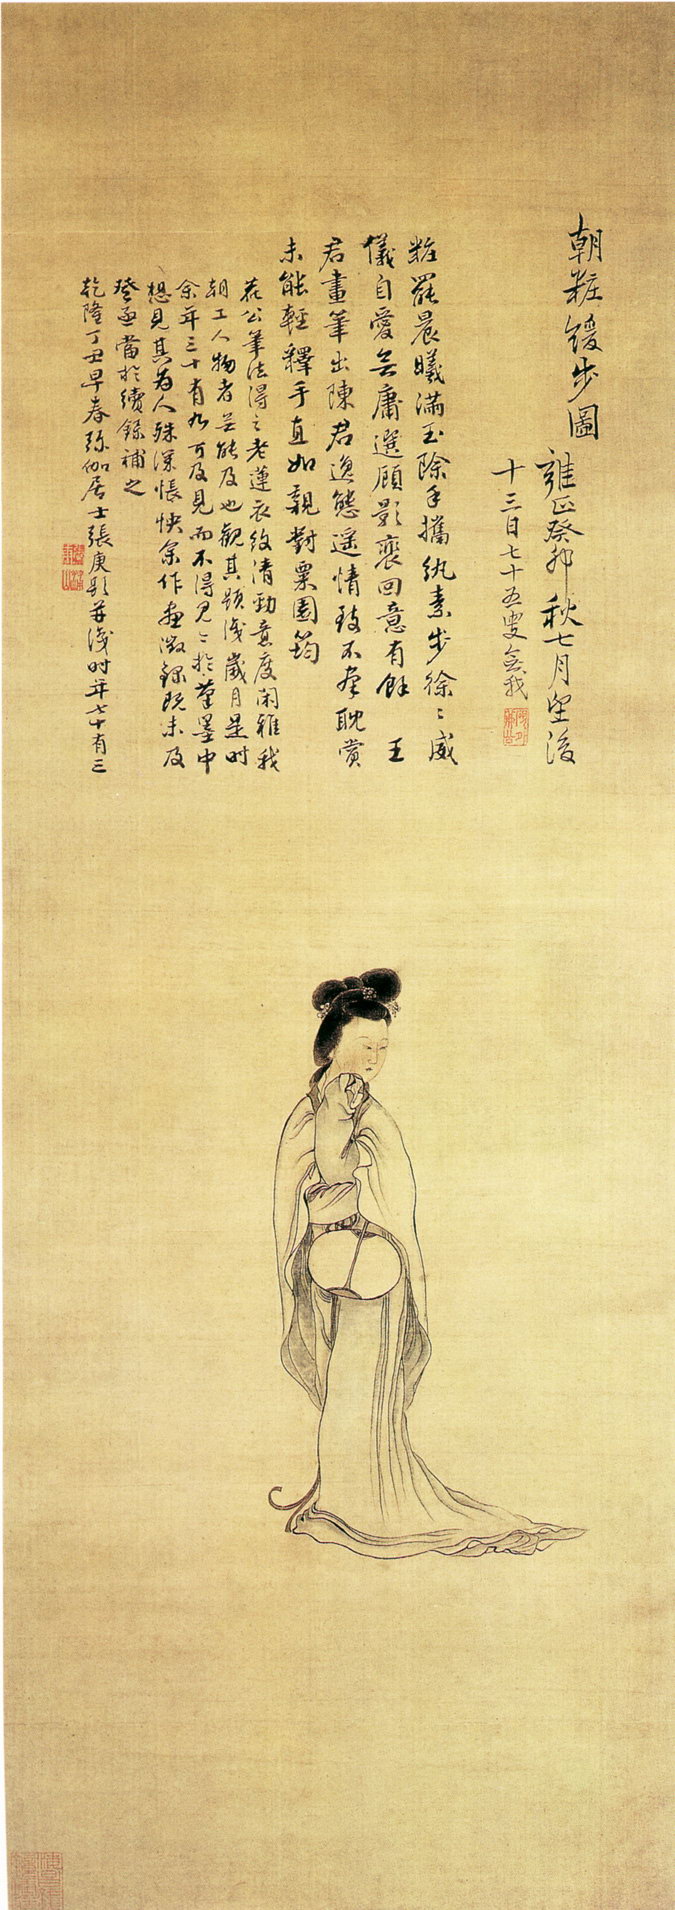 朝粧緩步圖
雍正癸卯秋七月望後
十三日七十五叟無我
粧罷晨曦滿玉除手攜紈素步徐〻威
儀自愛無庸選顧影裵回意有餘 王
君畫筆出陳君逸態遥情致不羣耽賞
未能輕釋手直如親對粟園筠
茲公筆法得之老蓮衣紋清勁意度閑雅我
朝工人物者無能及也觀其題識歲月是時
余年三十有九可及見而不得見〻於筆墨中
想見其為人殊深悵怏余作畫徵錄既未及
登亟當於續錄補之
乾隆丁丑早春弥伽居士張庚題并識時年七十有三